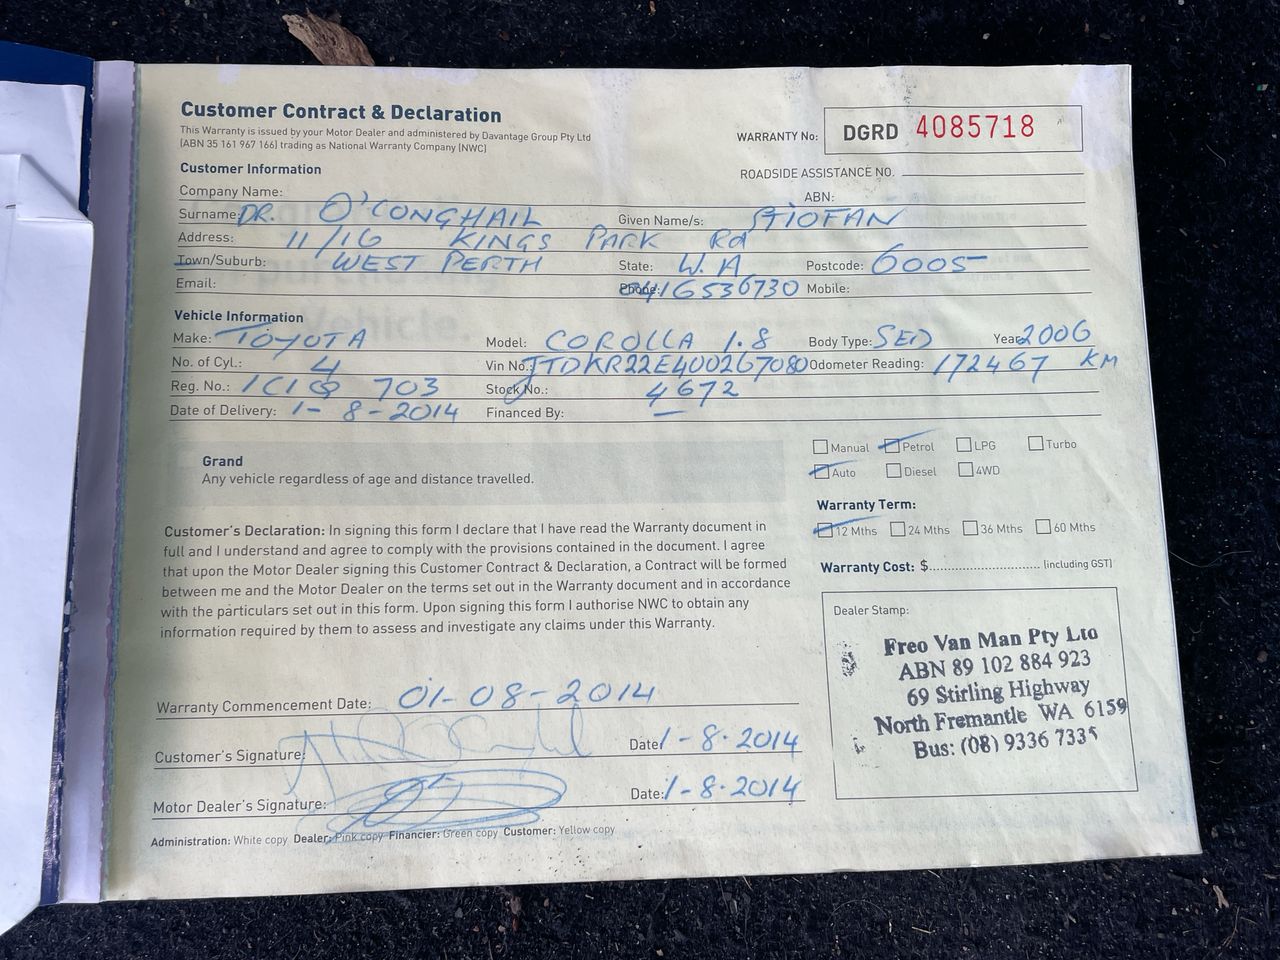 Customer Contract & Declaration
This Warranty is issued by your Motor Dealer and administered by Davantage Group Pty Ltd
(ABN 35 161 967 166) trading as National Warranty Company (NWC)
WARRANTY No: DGRD 4085718
ROADSIDE ASSISTANCE NO.
Customer Information
Company Name: ABN:
Surname: DR. O'CONGHAIL Given Name/s: STIOFAN
Address: 11/16 KINGS PARK Rd
Town/Suburb: WEST PERTH State: W.A Postcode: 6005
Email: Phone: 0416536730 Mobile:
Vehicle Information
Make: TOYOTA Model: COROLLA 1.8 Body Type: SED Year 2006
No. of Cyl.: 4 Vin No.: JTDKR22E400267080 Odometer Reading: 172467 KM
Reg. No.: 703 Stock No.: 4672
Date of Delivery: 1-8-2014 Financed By: —
Manual Petrol LPG Turbo
Auto Diesel 4WD
Grand
Any vehicle regardless of age and distance travelled.
Warranty Term:
12 Mths 24 Mths 36 Mths 60 Mths
Warranty Cost: $.............................. (including GST)
Customer's Declaration: In signing this form I declare that I have read the Warranty document in
full and I understand and agree to comply with the provisions contained in the document. I agree
that upon the Motor Dealer signing this Customer Contract & Declaration, a Contract will be formed
between me and the Motor Dealer on the terms set out in the Warranty document and in accordance
with the particulars set out in this form. Upon signing this form I authorise NWC to obtain any
information required by them to assess and investigate any claims under this Warranty.
Dealer Stamp:
Freo Van Man Pty Ltd
ABN 89 102 884 923
69 Stirling Highway
North Fremantle WA 6159
Bus: (08) 9336 7335
Warranty Commencement Date: 01-08-2014
Customer's Signature: Date: 1-8-2014
Motor Dealer's Signature: Date: 1-8-2014
Administration: White copy Dealer: Pink copy Financier: Green copy Customer: Yellow copy